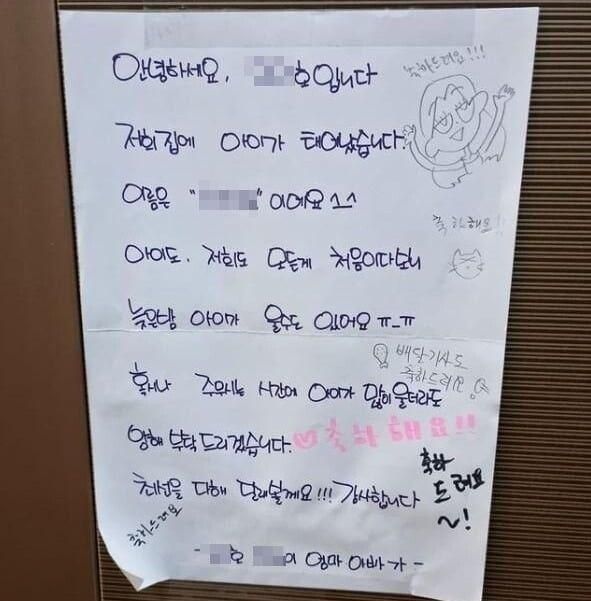 안녕하세요. 호입니다
축하드려요!!!
저희집에 아이가 태어났습니다.
이름은 " " 이에요 ^_^
축하해요!!
아이도. 저희도 모든게 처음이다보니
늦은밤 아이가 울수도 있어요 ㅠ_ㅠ
배달기사도
축하드려요
혹시나 주무시는 시간에 아이가 많이 울더라도
양해 부탁드리겠습니다.
♡축하해요!!
최선을 다해 달래볼게요!!! 감사합니다
축하
드려요
~!
축하드려요
- 호 이 엄마 아빠가 -